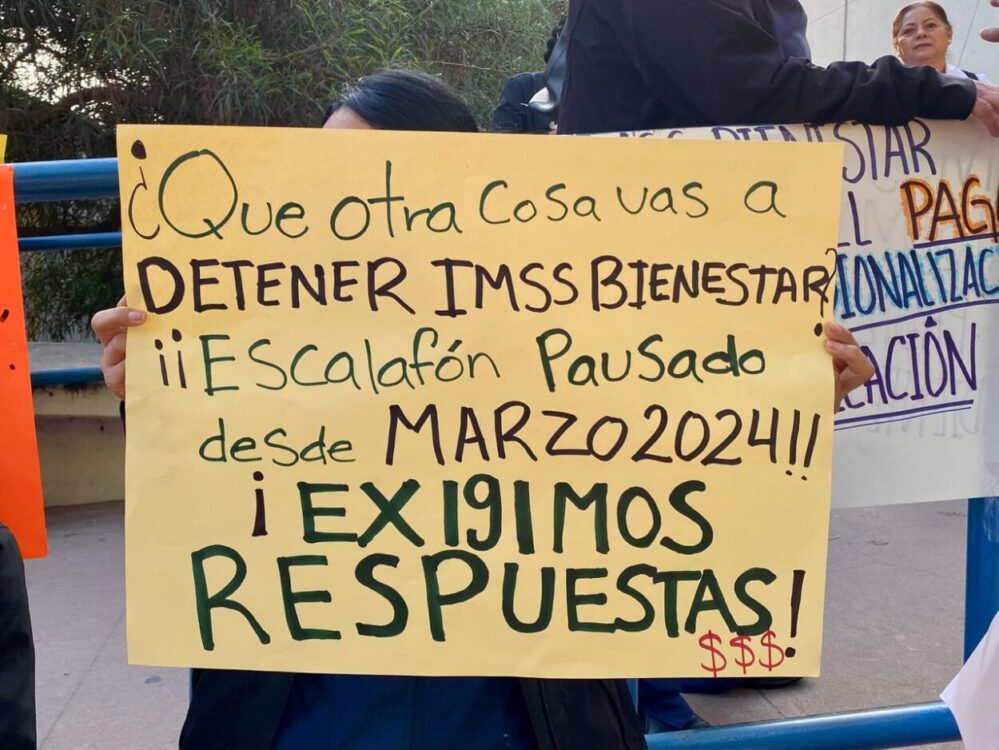 ¿Que otra cosa vas a
DETENER IMSS BIENESTAR?
¡¡Escalafón Pausado
desde MARZO 2024!!
¡EXIGIMOS
RESPUESTAS!
$$$
BIENESTAR
PAG
IONALIZAC
CACIÓN